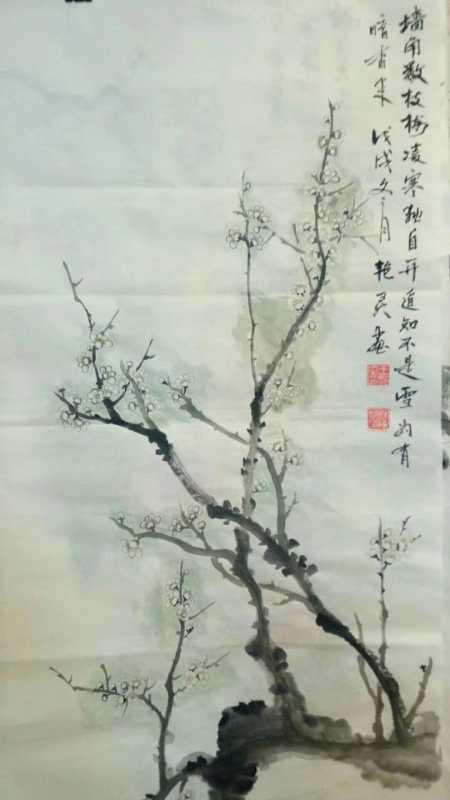 墙角数枝梅凌寒独自开遥知不是雪为有
暗香来 戊戌文之月 艳君画